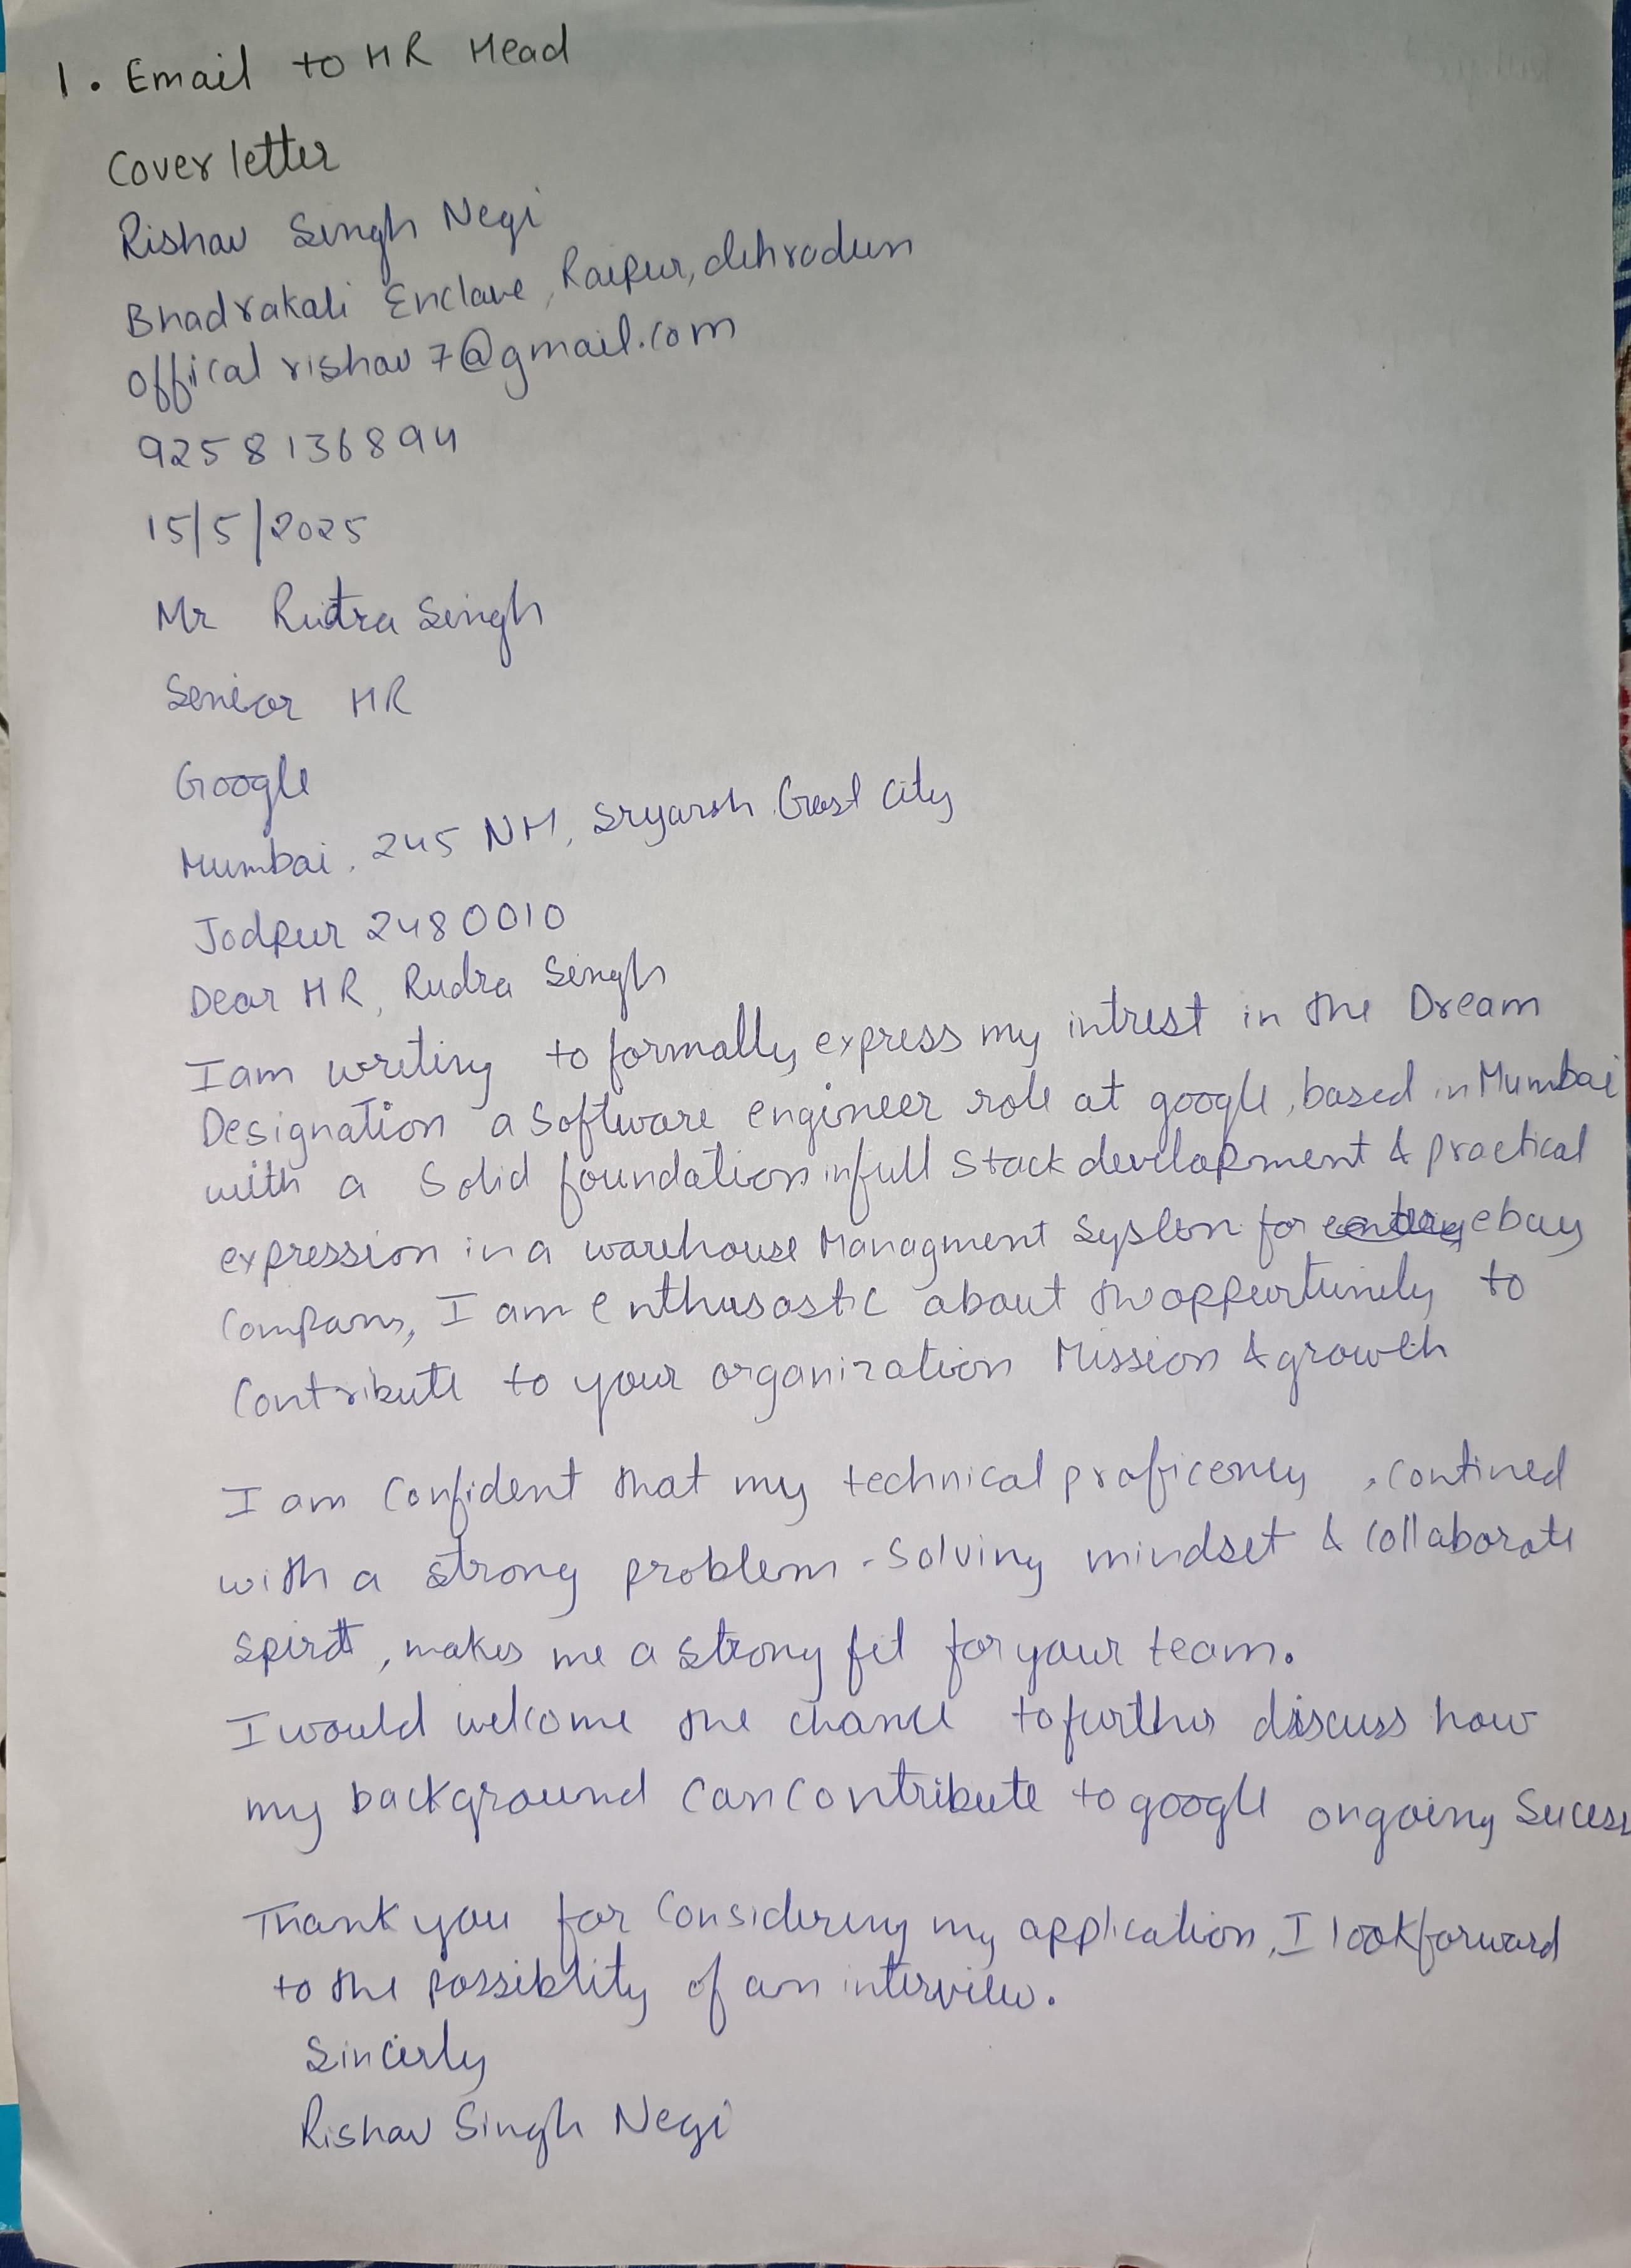 1. Email to HR Head
Cover letter
Rishav Singh Negi
Bhadrakali Enclave, Raipur, dehradun
offical rishav 7@gmail.com
9258136894
15/5/2025
Mr Rudra Singh
Senior HR
Google
Mumbai, 245 NH, City
Jodpur 2480010
Dear HR, Rudra Singh
I am writing to formally express my intrest in the Dream
Designation a Software engineer role at google, based in Mumbai
with a Solid foundation in full Stack development & practical
expression in a warehouse Managment System for ebay
Company, I am enthusastic about the oppurtunity to
Contribute to your organization Mission & growth
I am Confident that my technical proficency, contined
with a strong problem-solving mindset & collaborate
spirit, makes me a strong fit for your team.
I would welcome the chance to further discuss how
my background can contribute to google ongoing Sucess
Thank you for Considering my application, I look forward
to the possiblity of an interview.
Sincerly
Rishav Singh Negi